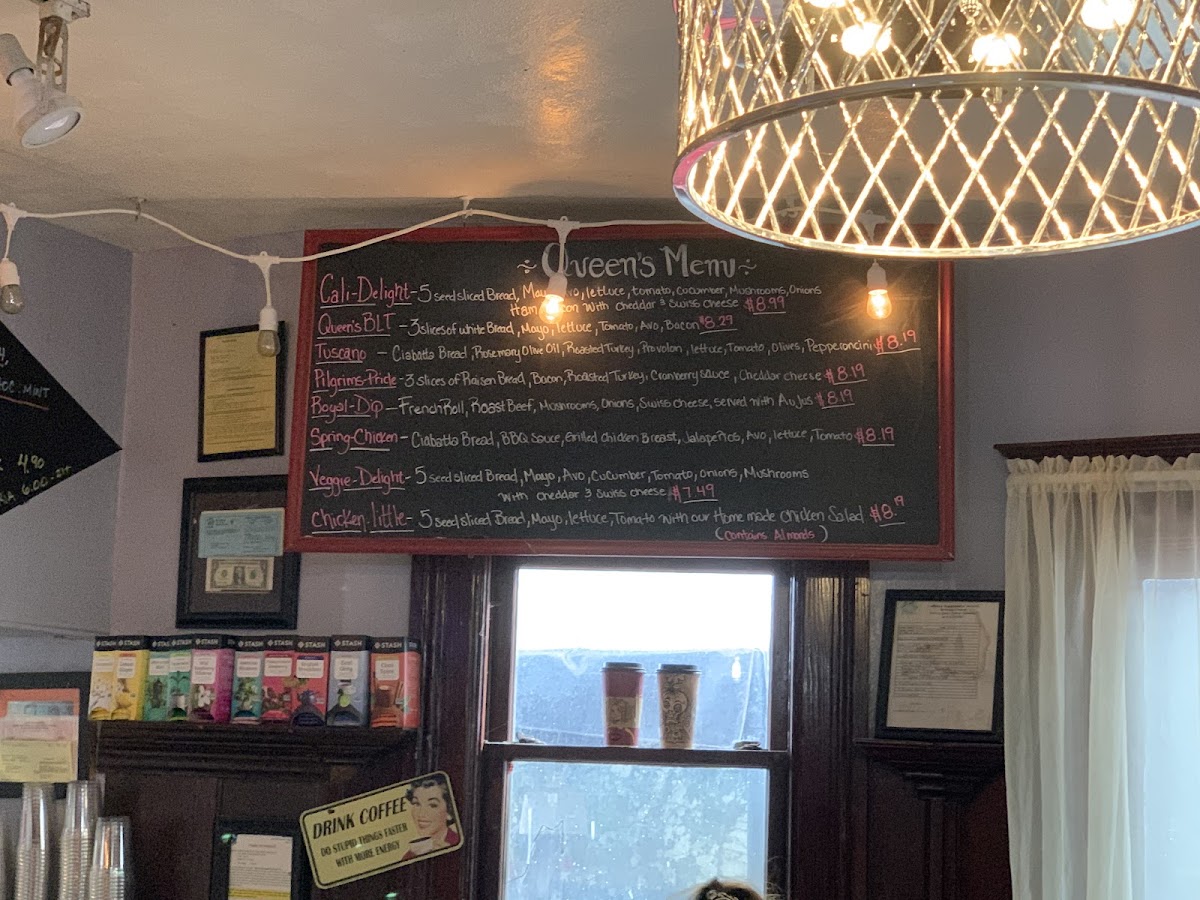 Queen's Menu
Cali-Delight - 5 seed sliced Bread, Mayo, Avo, lettuce, tomato, cucumber, Mushrooms, Onions
Ham, Bacon With cheddar & Swiss cheese $8.99
Queen's BLT - 3 slices of white Bread, Mayo, lettuce, Tomato, Avo, Bacon $8.29
Tuscano - Ciabatta Bread, Rosemary Olive Oil, Roasted Turkey, Provolon, lettuce, Tomato, Olives, Pepperoncini $8.19
Pilgrims-Pride - 3 slices of Raisen Bread, Bacon, Roasted Turkey, Cranberry sauce, Cheddar cheese $8.19
Royal-Dip - French Roll, Roast Beef, Mushrooms, Onions, Swiss cheese, served with Au Jus $8.19
Spring-Chicken - Ciabatta Bread, BBQ Sauce, Grilled chicken Breast, Jalapeños, Avo, lettuce, Tomato $8.19
Veggie-Delight - 5 seed sliced Bread, Mayo, Avo, Cucumber, Tomato, onions, Mushrooms
with cheddar & Swiss cheese $7.49
chicken-little - 5 seed sliced Bread, Mayo, lettuce, Tomato with our Home made Chicken Salad $8.19
(contains Almonds)
MINT
4.90
6.00
STASH STASH STASH STASH STASH STASH STASH STASH STASH
DRINK COFFEE
DO STUPID THINGS FASTER
WITH MORE ENERGY